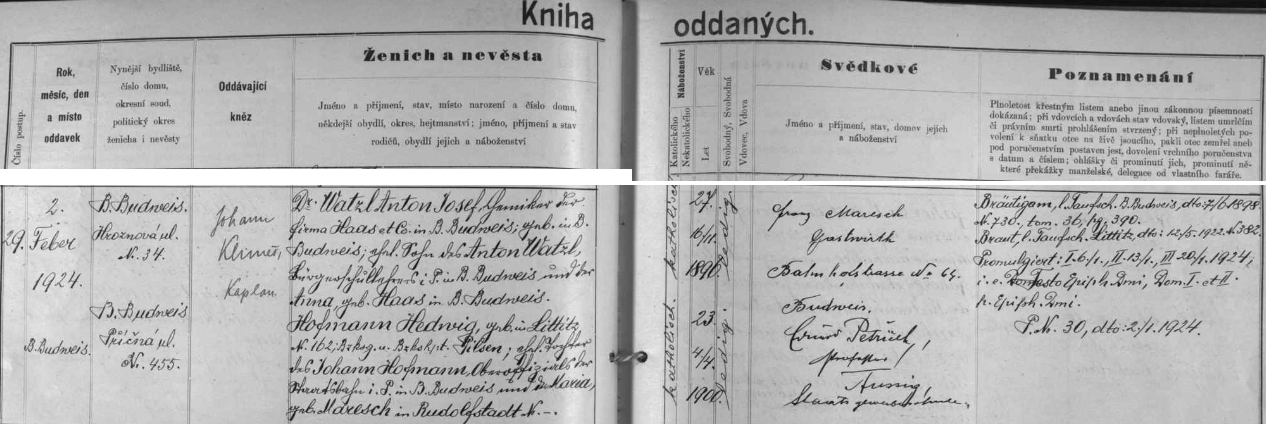 Kniha
oddaných.
Číslo postup.
Rok,
měsíc, den
a místo
oddavek
Nynější bydliště,
číslo domu,
okresní soud,
politický okres
ženicha i nevěsty
Oddávající
kněz
Ženich a nevěsta
Jméno a příjmení, stav, místo narození a číslo domu,
někdejší obydlí, okres, hejtmanství; jméno, příjmení a stav
rodičů, obydlí jejich a náboženství
Náboženství
Katolického
Nekatolického
Věk
Let
Svobodný, Svobodná
Vdovec, Vdova
Svědkové
Jméno a příjmení, stav, domov jejich
a náboženství
Poznamenání
Plnoletost křestným listem anebo jinou zákonnou písemností
dokázaná; při vdovcích a vdovách stav vdovský, listem úmrtím
či právním smrti prohlášením stvrzený; při neplnoletých po-
volení k sňatku otce na živě jsoucího, pakli otec zemřel aneb
pod poručenstvím postaven jest, dovolení vrchního poručenstva
s datum a číslem; ohlášky či prominutí jich, prominutí ně-
které překážky manželské, delegace od vlastního faráře.
2.
29. Feber
1924.
B.Budweis.
B. Budweis.
Hroznová ul.
N. 34.
B. Budweis
Příčná ul.
N. 455.
Johann
Klimeš,
Kaplan.
Dr. Watzl Anton Josef, Chemiker der
Firma Haas et Co. in B. Budweis; geb. in B.
Budweis; ehel. Sohn des Anton Watzl,
Bürgerschullehrers i. P. in B. Budweis und der
Anna, geb. Haas in B. Budweis.
Hofmann Hedwig, geb. in Littitz
N. 162; Bzkeg. u. Bzksht. Pilsen; ehel. Tochter
des Johann Hofmann, Oberoffizials der
Staatsbahn i. P. in B. Budweis und der Maria,
geb. Maresch in Rudolfstadt N. –.
katholisch
katholisch.
27.
16/11.
1896
23.
4/4.
1900.
ledig
ledig.
Franz Maresch
Gastwirth
Bahnhofstrasse No 64.
Budweis,
Eduard Petřlich,
Professor
Aussig,
Bräutigam, l. Taufsch. B. Budweis, dto: 7/6 1898.
N. 730. tom. 36, pg. 390.
Braut, l. Taufsch. Littitz, dto: 12/5. 1922. N. 382.
Promulgiert: I. 6/1., II. 13/1., III 20/1. 1924;
i. e. Festo Epiph. Dmi, Dom. I. et II.
p. Epiph. Dmi.
P. N. 30, dto: 2/1. 1924.